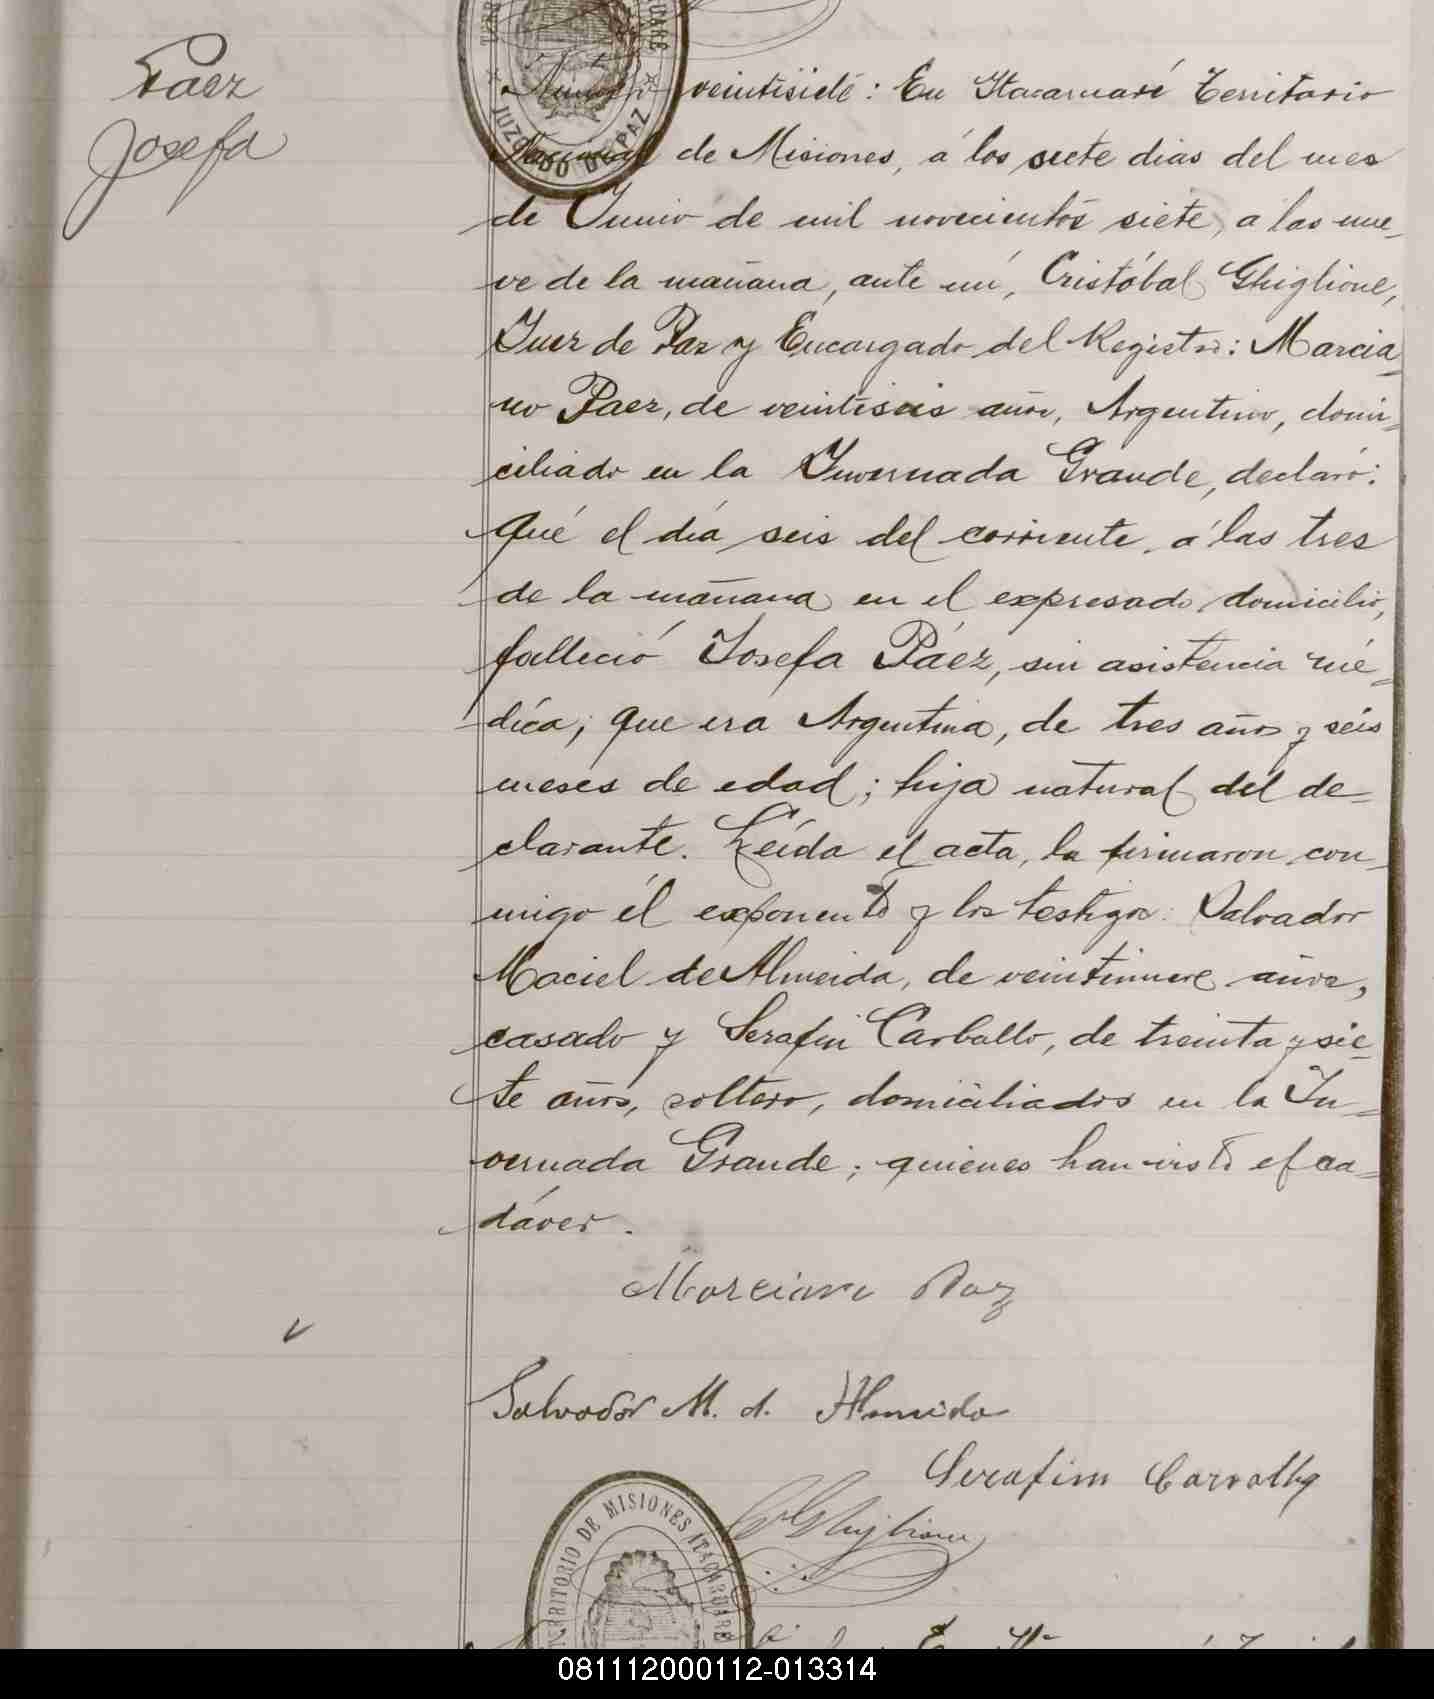 Paez
Josefa
Número veintisiete: En Itacaruaré Territorio
Nacional de Misiones, á los siete dias del mes
de Junio de mil novecientos siete, a las nue-
ve de la mañana, ante mí, Cristóbal Ghiglione,
Juez de Paz y Encargado del Registro: Marcia-
no Paez, de veintiseis años, Argentino, domi-
ciliado en la Invernada Grande, declaró:
Qué el día seis del corriente, á las tres
de la mañana en el expresado domicilio,
falleció Josefa Páez, sin asistencia mé-
dica; que era Argentina, de tres años y seis
meses de edad; hija natural del de-
clarante. Leída el acta, la firmaron con-
migo él exponente y los testigos: Salvador
Maciel de Almeida, de veintinueve años,
casado y Serafin Carballo, de treinta y sie-
te años, soltero, domiciliados en la In-
vernada Grande; quienes han visto el ca-
dáver.
Marciano Paz
Salvador M. d. Almeida
Serafim Carvalho
C Ghiglione
TERRITORIO DE MISIONES ITACARUARE
JUZGADO DE PAZ
081112000112-013314